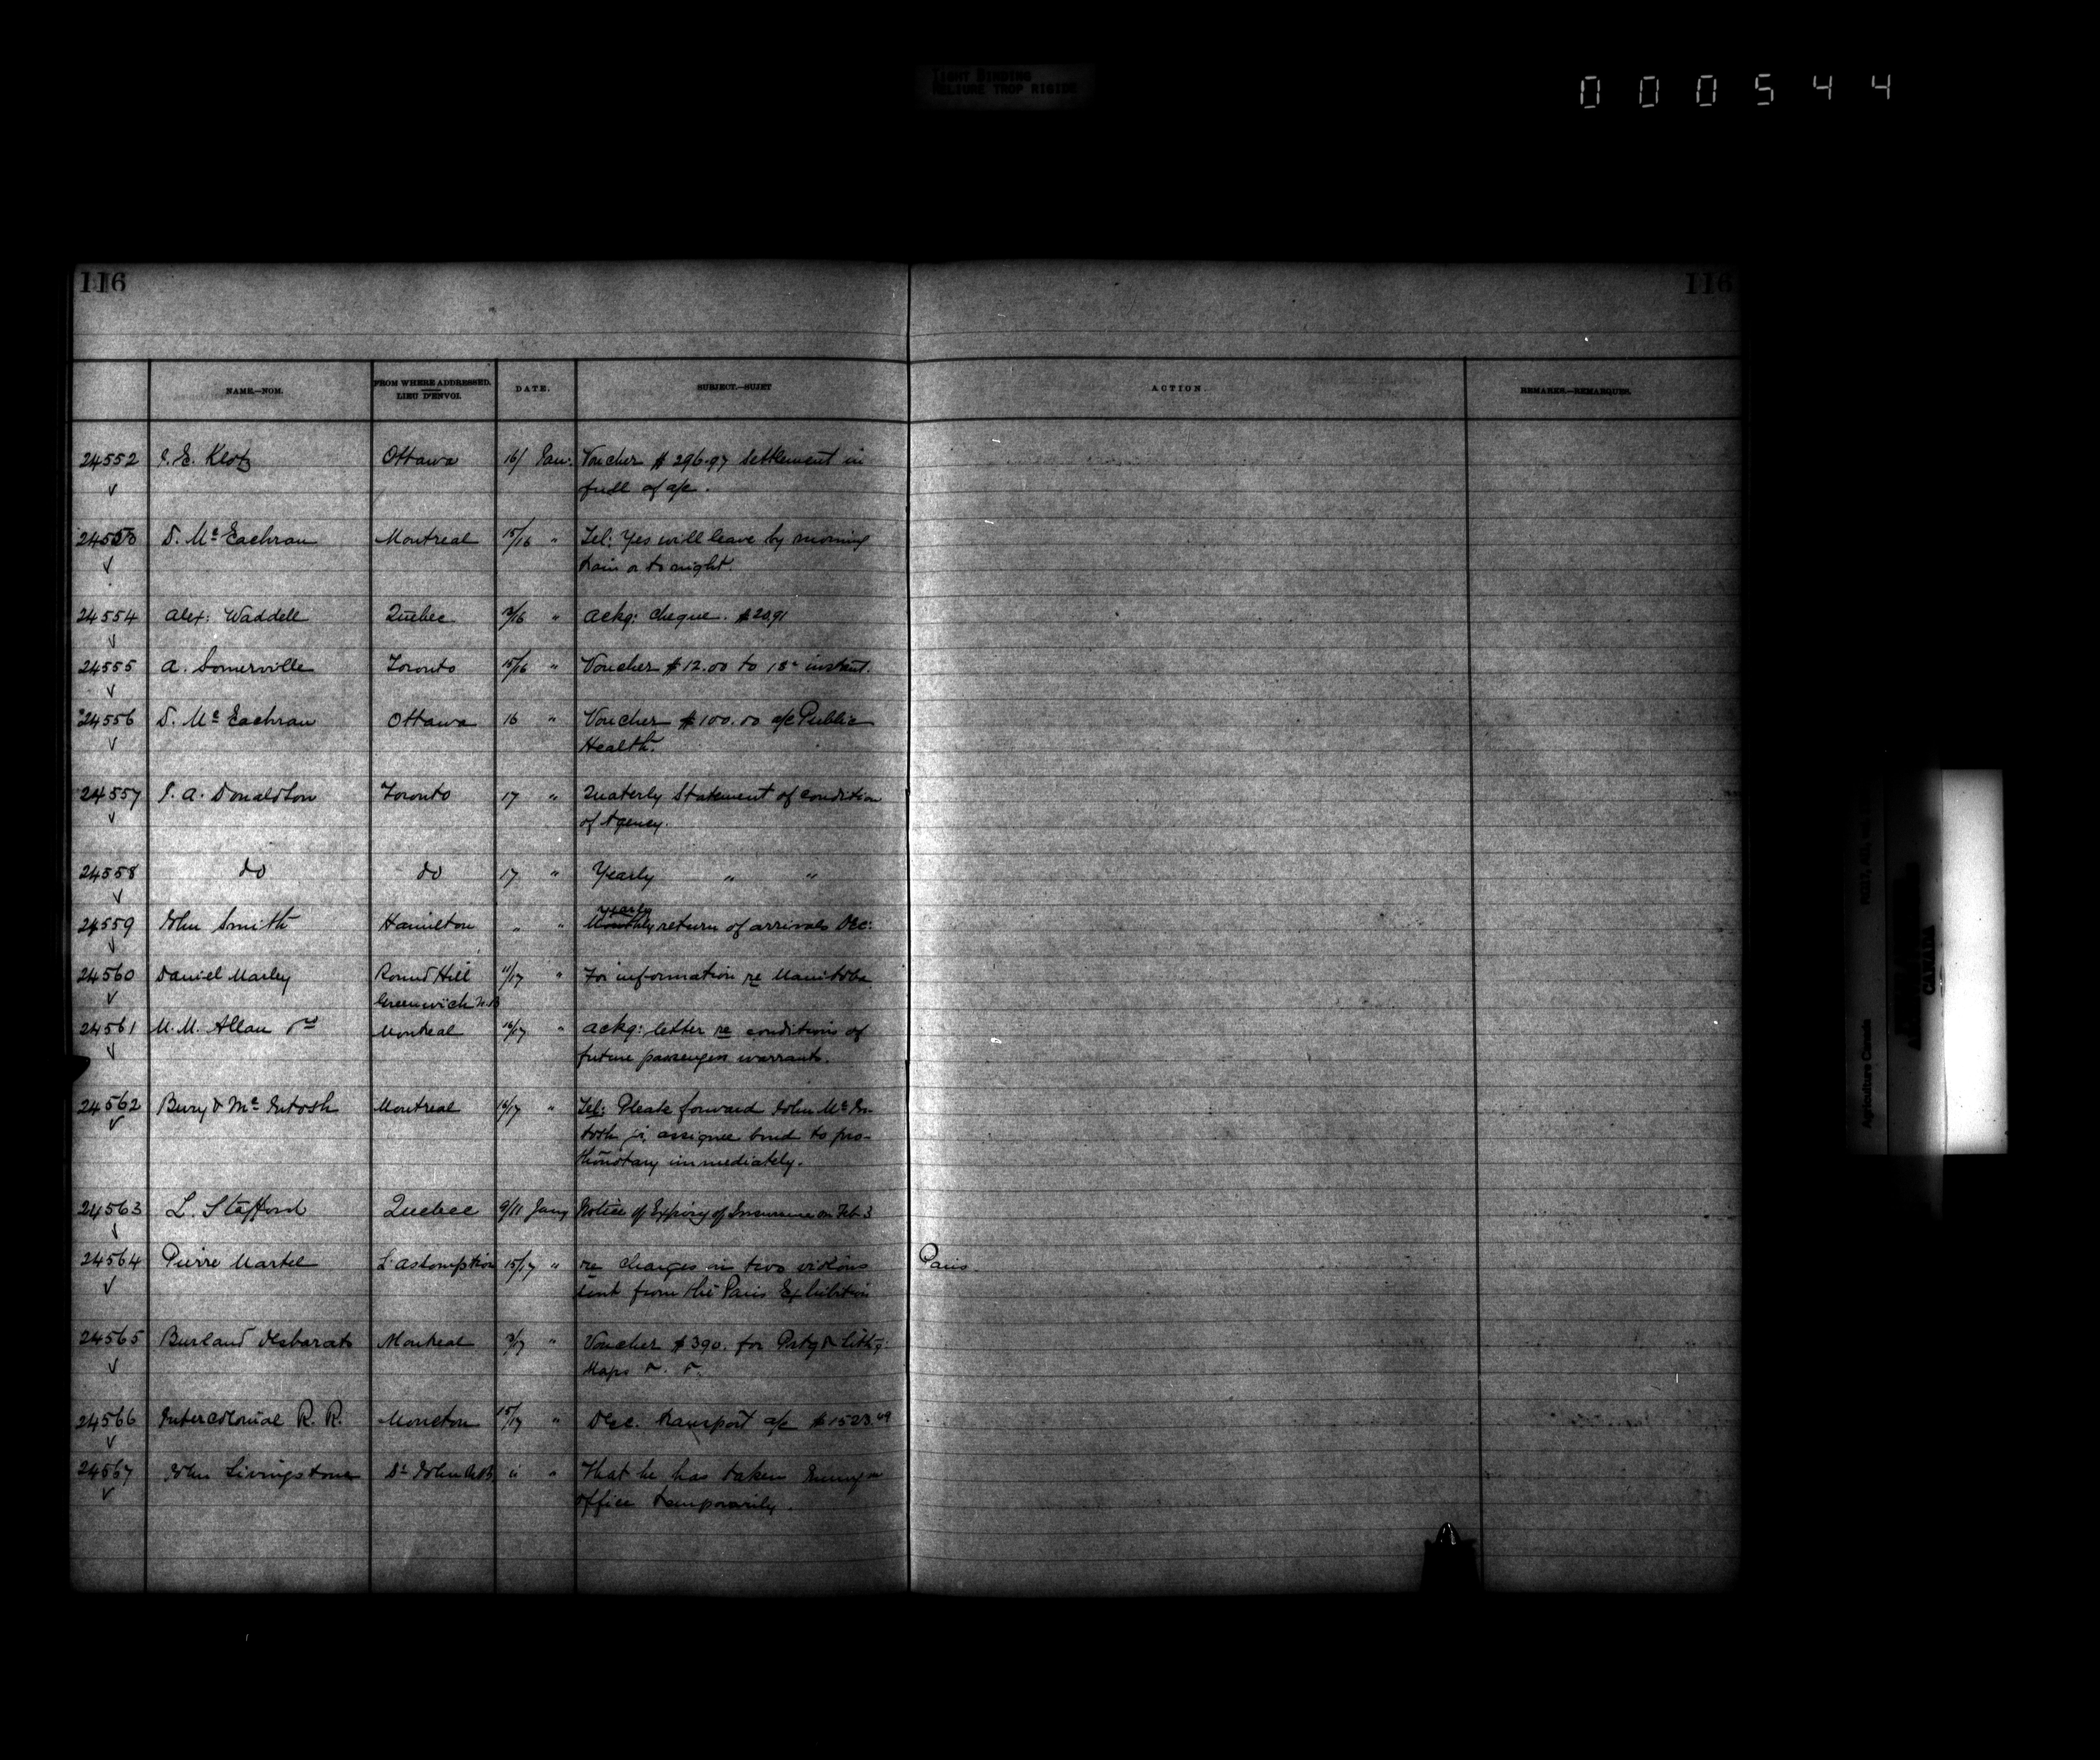 TIGHT BINDING
RELIURE TROP RIGIDE
000544
116 116
NAME.—NOM. FROM WHERE ADDRESSED. LIEU D'ENVOI. DATE. SUBJECT.—SUJET ACTION. REMARKS.—REMARQUES.
24552 E. Klotz Ottawa 16/ Jan: Voucher $296.97 Settlement in
full of a/c.
D. Mc Eachran Montreal 15/16 " Tel: Yes will leave by morning
train or to night.
24554 Alex: Waddell Quebec /16 " Ackg: cheque. $20.91
24555 A. Somerville Toronto 15/16 " Voucher $12.00 to 15th instant.
24556 D. Mc Eachran Ottawa 16 " Voucher $100.00 a/c Public
Health.
24557 J. A. Donaldson Toronto 17 " Quaterly Statement of condition
of Agency.
24558 do do 17 " Yearly " "
yearly
24559 John Smith Hamilton " " Monthly return of arrivals Dec:
24560 Daniel Marley Round Hill 11/17 " For information re Manitoba
Greenwich N.B
24561 Allan Montreal 16/17 " Ackg: letter re conditions of
future passengers warrants.
24562 Bury & Mc Intosh Montreal 16/17 " Tel: Please forward John Mc In-
tosh jr, assignee bond to pro-
thonotary immediately.
24563 L. Stafford Quebec 9/11 Jany Notice of Expiry of Insurance on Feb 3
24564 Pierre Martel L'assomption 15/17 " re charges on two violins Paris
sent from the Paris Exhibition
24565 Burland Desbarats Montreal " Voucher $390. for Prtg & lithg:
Maps & &
24566 Intercolonial R. R. Moncton 15/17 " Dec. transport a/c $1523.49
24567 John Livingstone St John N.B. " " That he has taken
office temporarily.
Agriculture Canada
CANADA